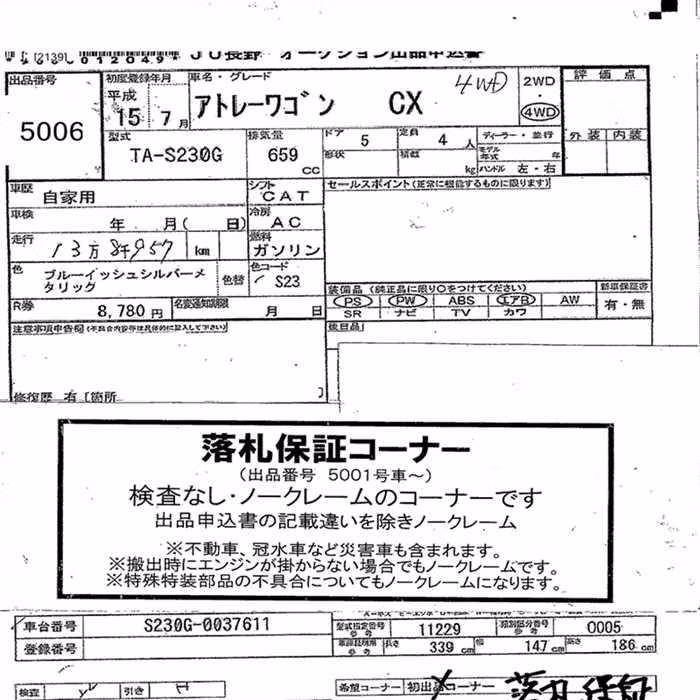 [2139]
012049* JU長野 オークション出品申込書
出品番号
5006
初度登録年月
平成
15 7月
車名・グレード
アトレーワゴン CX
4WD
2WD
4WD
評価点
外装 内装
型式
TA-S230G
排気量
659 cc
ドア 5
形状
定員 4 人
積載 kg
ディーラー・並行
モデル年式 年
ハンドル 左・右
車歴 自家用
シフト CAT
セールスポイント(正常に機能するものに限ります)
車検 年 月( 日)
冷房 AC
走行 13万8千957 km
燃料 ガソリン
色 ブルーイッシュシルバーメタリック
色替
色コード S23
R券 8,780円
名変通知期限 月 日
装備品(純正品に限り○をつけてください)
新車保証書
PS PW ABS エアB AW
有・無
SR ナビ TV カワ
後日品
注意事項申告欄(不具合内容等は具体的に記入して下さい)
修復歴 有 [箇所 ]
落札保証コーナー
(出品番号 5001号車~)
検査なし・ノークレームのコーナーです
出品申込書の記載違いを除きノークレーム
※不動車、冠水車など災害車も含まれます。
※搬出時にエンジンが掛からない場合でもノークレームです。
※特殊特装部品の不具合についてもノークレームになります。
車台番号 S230G-0037611
型式指定番号 参考 11229
類別区分番号 参考 0005
登録番号
車両証明用 参考 長さ 339 cm 幅 147 cm 高さ 186 cm
検査
引き
希望コーナー 初出品コーナー